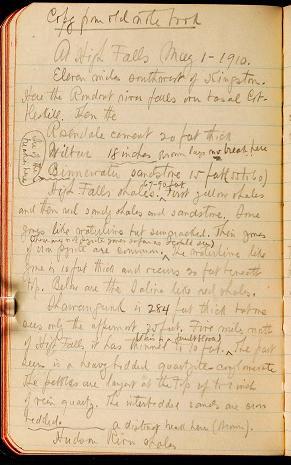 Copy from old note book
At High Falls May 1 - 1910.
Eleven miles southwest of Kingston.
Here the Rondout river falls over basal Cobleskill. Then the
Rosendale cement 20 feet thick
Wilbur 18 inches no break here
Binnewater sandstone 15 feet
High Falls shales. 67-90 feet First yellow shales
and then red sandy shales and sandstone. Some
zones like waterlime but suncracked. Then zones
of iron pyrite are common. The waterlime like
zone is 10 feet thick and occurs 20 feet beneath
top. Below are the Salina like red shales.
Shawangunk is 284 feet thick but one
sees only the uppermost 25 feet. Five miles north
of High Falls it has thinned to 10 feet. The part
seen is a heavy bedded quartzite-conglomerate
The pebbles are largest at the top up to 1 inch
of vein quartz. The interbedded sands are cross
bedded. a distinct break here
Hudson River shales